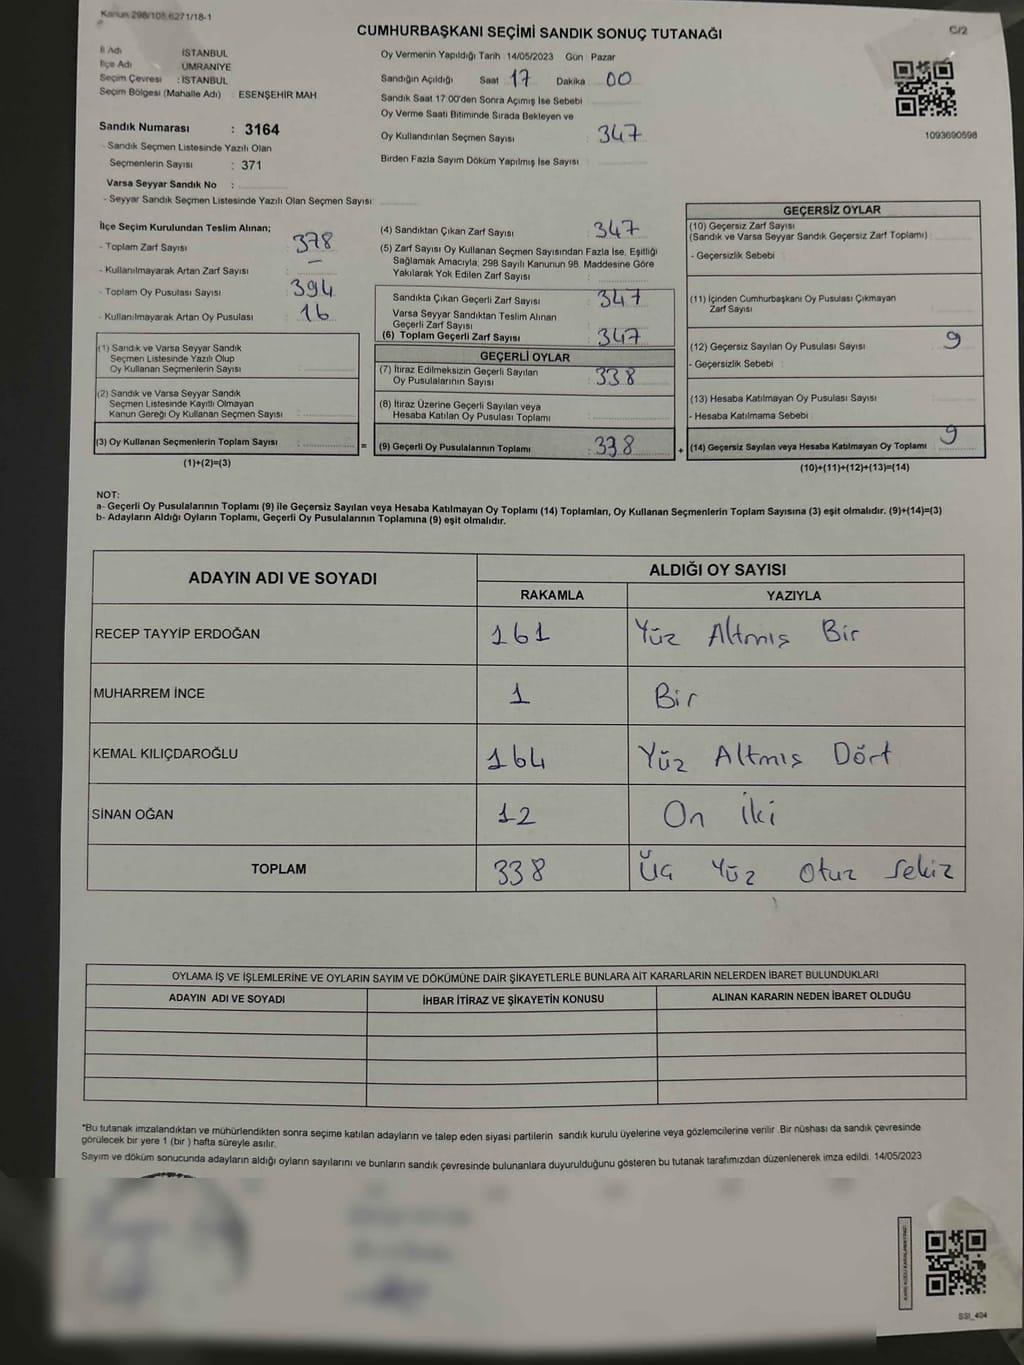 Kanun 298/105 6271/18-1
CUMHURBAŞKANI SEÇİMİ SANDIK SONUÇ TUTANAĞI
C/2
İl Adı : İSTANBUL
İlçe Adı : ÜMRANİYE
Seçim Çevresi : İSTANBUL
Seçim Bölgesi (Mahalle Adı) : ESENŞEHİR MAH.
Sandık Numarası : 3164
- Sandık Seçmen Listesinde Yazılı Olan
Seçmenlerin Sayısı : 371
Varsa Seyyar Sandık No :
- Seyyar Sandık Seçmen Listesinde Yazılı Olan Seçmen Sayısı:
Oy Vermenin Yapıldığı Tarih 14/05/2023 Gün Pazar
Sandığın Açıldığı Saat 17 Dakika 00
Sandık Saat 17:00'den Sonra Açımış İse Sebebi
Oy Verme Saati Bitiminde Sırada Bekleyen ve
Oy Kullandırılan Seçmen Sayısı : 347
Birden Fazla Sayım Döküm Yapılmış İse Sayısı
1093690598
İlçe Seçim Kurulundan Teslim Alınan;
- Toplam Zarf Sayısı : 378
- Kullanılmayarak Artan Zarf Sayısı : –
- Toplam Oy Pusulası Sayısı : 394
- Kullanılmayarak Artan Oy Pusulası : 16
(1) Sandık ve Varsa Seyyar Sandık
Seçmen Listesinde Yazılı Olup
Oy Kullanan Seçmenlerin Sayısı :
(2) Sandık ve Varsa Seyyar Sandık
Seçmen Listesinde Kayıtlı Olmayan
Kanun Gereği Oy Kullanan Seçmen Sayısı :
(3) Oy Kullanan Seçmenlerin Toplam Sayısı : =
(1)+(2)=(3)
(4) Sandıktan Çıkan Zarf Sayısı : 347
(5) Zarf Sayısı Oy Kullanan Seçmen Sayısından Fazla İse, Eşitliği
Sağlamak Amacıyla, 298 Sayılı Kanunun 98. Maddesine Göre
Yakılarak Yok Edilen Zarf Sayısı :
Sandıkta Çıkan Geçerli Zarf Sayısı : 347
Varsa Seyyar Sandıktan Teslim Alınan
Geçerli Zarf Sayısı :
(6) Toplam Geçerli Zarf Sayısı : 347
GEÇERLİ OYLAR
(7) İtiraz Edilmeksizin Geçerli Sayılan
Oy Pusulalarının Sayısı : 338
(8) İtiraz Üzerine Geçerli Sayılan veya
Hesaba Katılan Oy Pusulası Toplamı :
(9) Geçerli Oy Pusulalarının Toplamı : 338 +
GEÇERSİZ OYLAR
(10) Geçersiz Zarf Sayısı
(Sandık ve Varsa Seyyar Sandık Geçersiz Zarf Toplamı)
- Geçersizlik Sebebi :
(11) İçinden Cumhurbaşkanı Oy Pusulası Çıkmayan
Zarf Sayısı
(12) Geçersiz Sayılan Oy Pusulası Sayısı 9
- Geçersizlik Sebebi :
(13) Hesaba Katılmayan Oy Pusulası Sayısı
- Hesaba Katılmama Sebebi :
(14) Geçersiz Sayılan veya Hesaba Katılmayan Oy Toplamı 9
(10)+(11)+(12)+(13)=(14)
NOT:
a- Geçerli Oy Pusulalarının Toplamı (9) ile Geçersiz Sayılan veya Hesaba Katılmayan Oy Toplamı (14) Toplamları, Oy Kullanan Seçmenlerin Toplam Sayısına (3) eşit olmalıdır. (9)+(14)=(3)
b- Adayların Aldığı Oyların Toplamı, Geçerli Oy Pusulalarının Toplamına (9) eşit olmalıdır.
ADAYIN ADI VE SOYADI
ALDIĞI OY SAYISI
RAKAMLA YAZIYLA
RECEP TAYYİP ERDOĞAN 161 Yüz Altmış Bir
MUHARREM İNCE 1 Bir
KEMAL KILIÇDAROĞLU 164 Yüz Altmış Dört
SİNAN OĞAN 12 On İki
TOPLAM 338 Üç Yüz Otuz Sekiz
OYLAMA İŞ VE İŞLEMLERİNE VE OYLARIN SAYIM VE DÖKÜMÜNE DAİR ŞİKAYETLERLE BUNLARA AİT KARARLARIN NELERDEN İBARET BULUNDUKLARI
ADAYIN ADI VE SOYADI İHBAR İTİRAZ VE ŞİKAYETİN KONUSU ALINAN KARARIN NEDEN İBARET OLDUĞU
*Bu tutanak imzalandıktan ve mühürlendikten sonra seçime katılan adayların ve talep eden siyasi partilerin sandık kurulu üyelerine veya gözlemcilerine verilir .Bir nüshası da sandık çevresinde
görülecek bir yere 1 (bir ) hafta süreyle asılır.
Sayım ve döküm sonucunda adayların aldığı oyların sayılarını ve bunların sandık çevresinde bulunanlara duyurulduğunu gösteren bu tutanak tarafımızdan düzenlenerek imza edildi. 14/05/2023
SSI_404